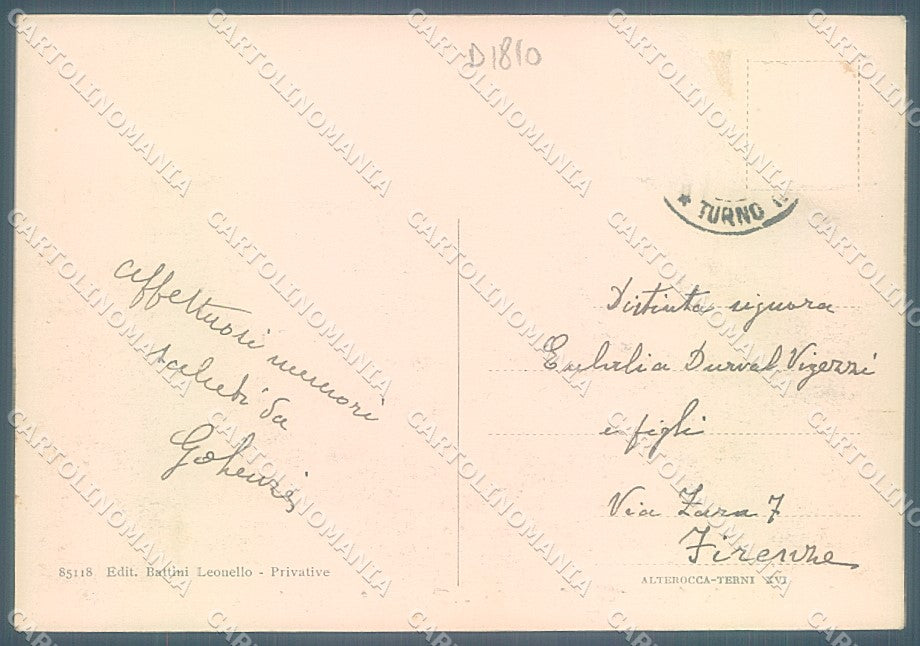 D1810
* TURNO
affettuosi memori
saluti da
Distinta signora
Eulalia Durval Vigezzi
e figli
Via Zara 7
Firenze
85118 Edit. Battini Leonello - Privative
ALTEROCCA-TERNI XVI
CARTOLINOMANIA